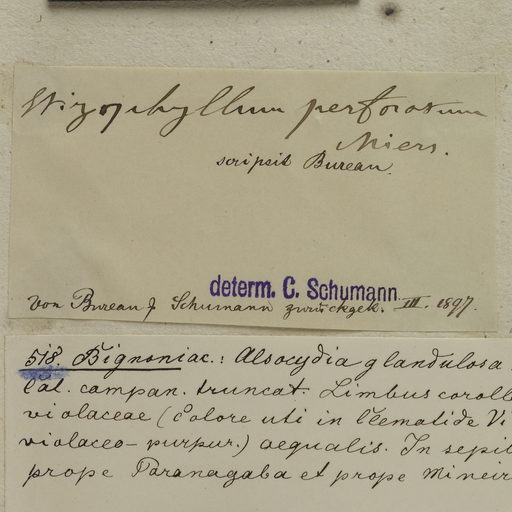 Stizophyllum perforatum
Miers.
scripsit Bureau.
determ. C. Schumann
Von Bureau & Schumann zurückgek. III. 1897.
518. Bignoniac.: Alsocydia glandulosa
Cal. campan. truncat. Limbus coroll
violaceae (Colore uti in Clematide Vi
violaceo-purpur.) aequalis. In sepib
prope Paranagaba et prope Mineir